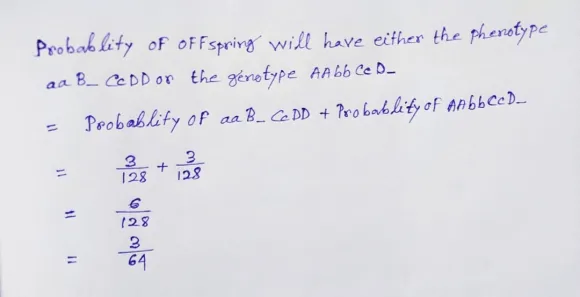 Probablity of offspring will have either the phenotype
aa B_ CcDD or the genotype AAbb Cc D_
= Probablity of aa B_ CcDD + Probablity of AAbbCcD_
= 3/128 + 3/128
= 6/128
= 3/64